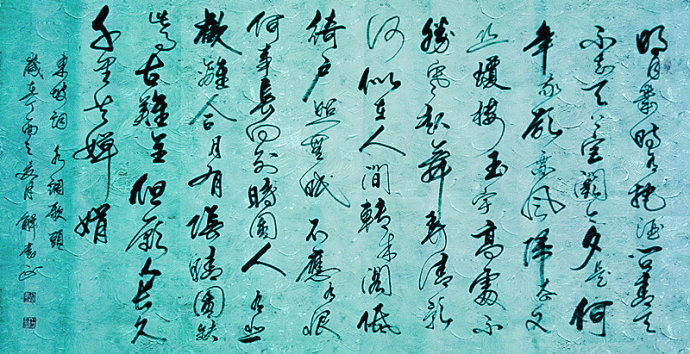 明月幾時有把酒問青天
不知天上宮闕今夕是何
年我欲乘風歸去又
恐瓊樓玉宇高處不
勝寒起舞弄清影
何似在人間轉朱閣低
綺戶照無眠不應有恨
何事長向別時圓人有悲
歡離合月有陰晴圓缺
此事古難全但願人長久
千里共嬋娟
東坡詞水調歌頭
歲在丁酉之夏月